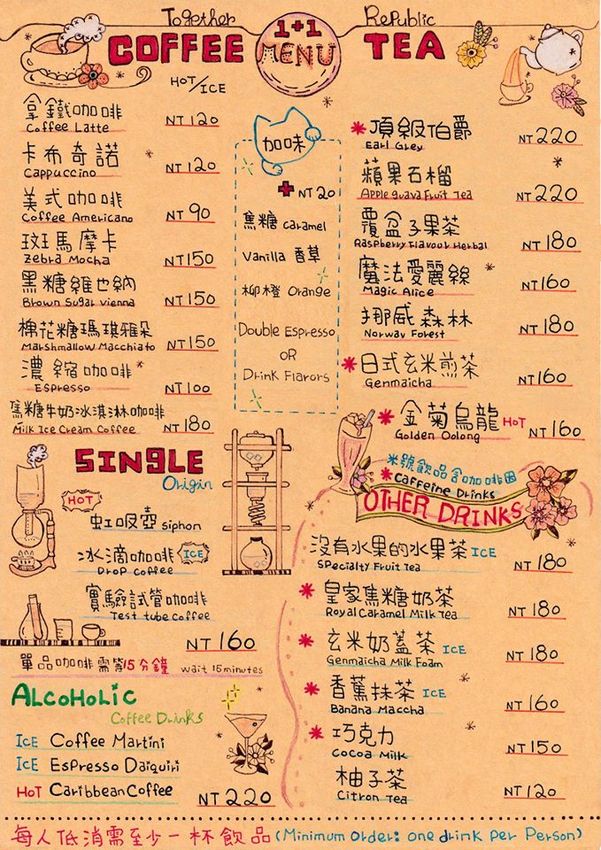 Together 1+1 Republic
COFFEE MENU TEA
HOT/ICE
拿鐵咖啡
Coffee Latte NT 120
卡布奇諾
Cappuccino NT 120
美式咖啡
Coffee Americano NT 90
斑馬摩卡
Zebra Mocha NT 150
黑糖維也納
Brown Sugar Vienna NT 150
棉花糖瑪琪雅朵
Marshmallow Macchiato NT 150
濃縮咖啡
Espresso NT 100
焦糖牛奶冰淇淋咖啡
Milk Ice Cream Coffee NT 180
加味
+ NT 20
焦糖 Caramel
Vanilla 香草
柳橙 Orange
Double Espresso
OR
Drink Flavors
* 頂級伯爵
Earl Grey NT 220
蘋果石榴
Apple guava Fruit Tea NT 220
覆盆子果茶
Raspberry Flavour Herbal NT 180
魔法愛麗絲
Magic Alice NT 160
挪威森林
Norway Forest NT 180
* 日式玄米煎茶
Genmaicha NT 160
* 金菊烏龍 HOT
Golden Oolong NT 160
SINGLE
Origin
HOT
虹吸壺 Siphon
冰滴咖啡 ICE
Drop Coffee
實驗試管咖啡
Test tube Coffee
NT 160
單品咖啡需等15分鐘 wait 15 minutes
ALCOHOLIC
Coffee Drinks
ICE Coffee Martini
ICE Espresso Daiquiri
HOT Caribbean Coffee
NT 220
米號飲品含咖啡因
* Caffeine Drinks
OTHER DRINKS
沒有水果的水果茶 ICE
Specialty Fruit Tea NT 180
* 皇家焦糖奶茶
Royal Caramel Milk Tea NT 180
* 玄米奶蓋茶 ICE
Genmaicha Milk Foam NT 180
* 香蕉抹茶 ICE
Banana Maccha NT 160
* 巧克力
Cocoa Milk NT 150
柚子茶
Citron Tea NT 120
每人低消需至少一杯飲品 (Minimum order: one drink per Person)